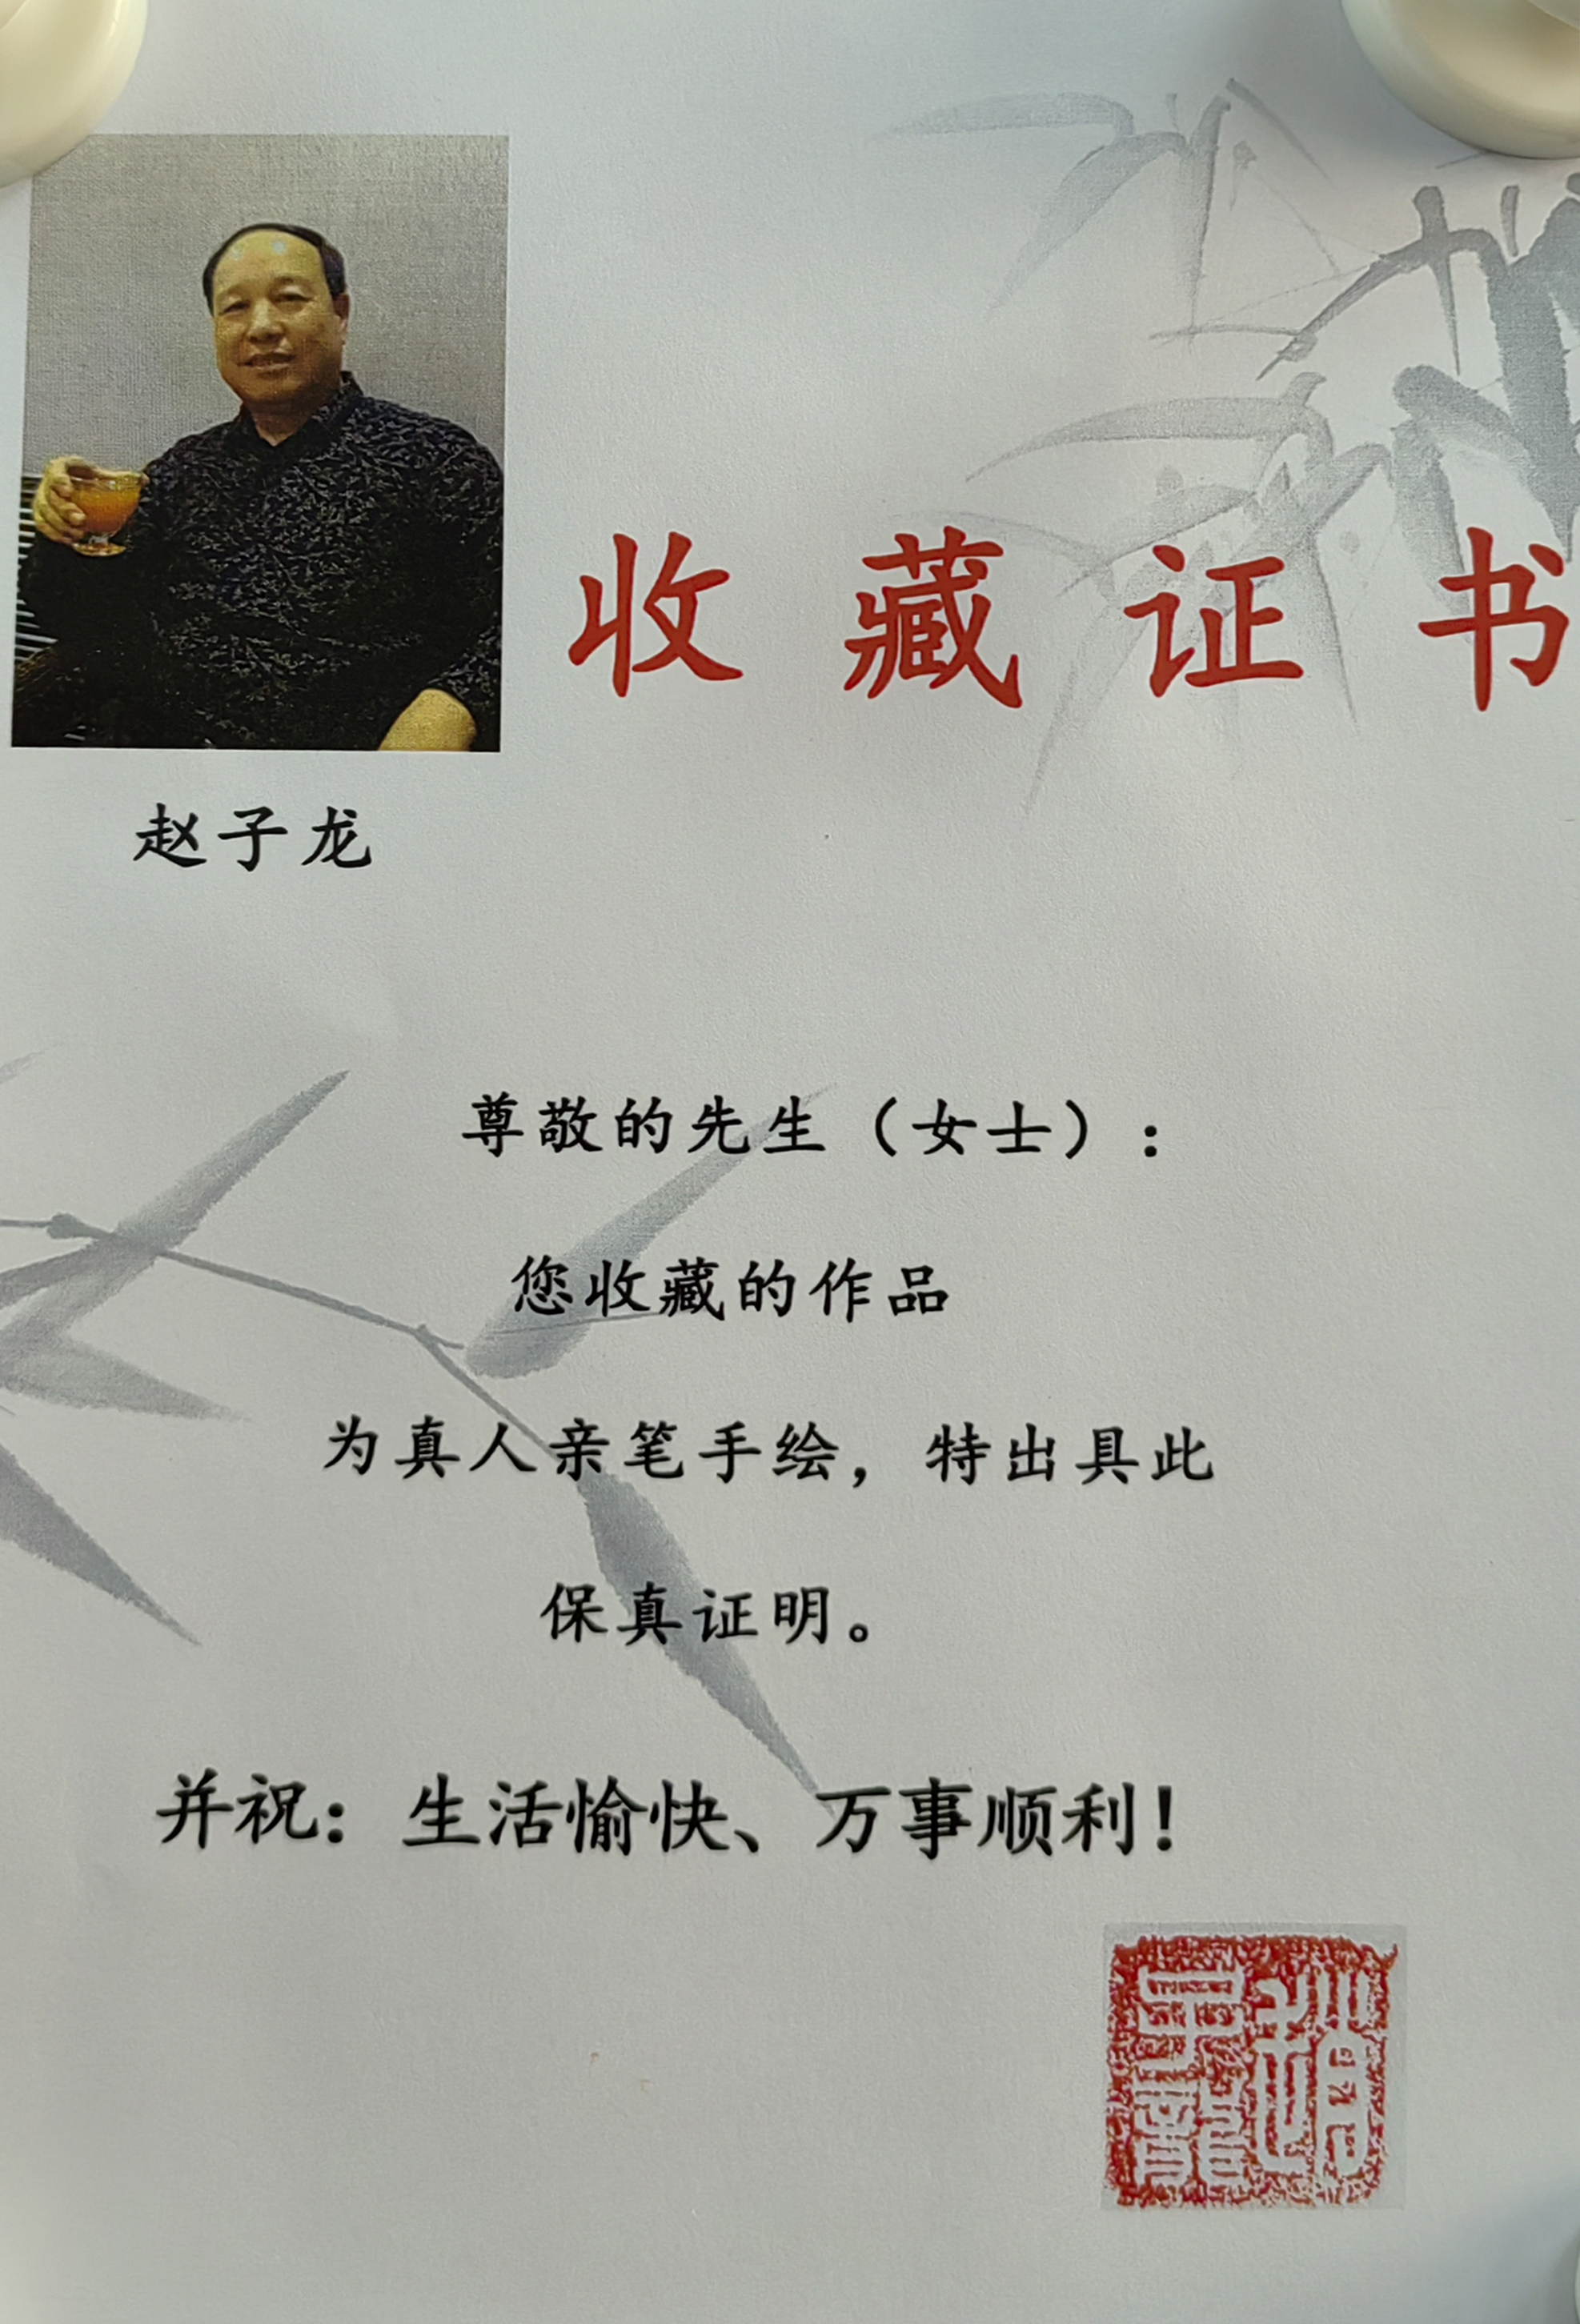 收藏证书
赵子龙
尊敬的先生（女士）:
您收藏的作品
为真人亲笔手绘，特出具此
保真证明。
并祝：生活愉快、万事顺利！